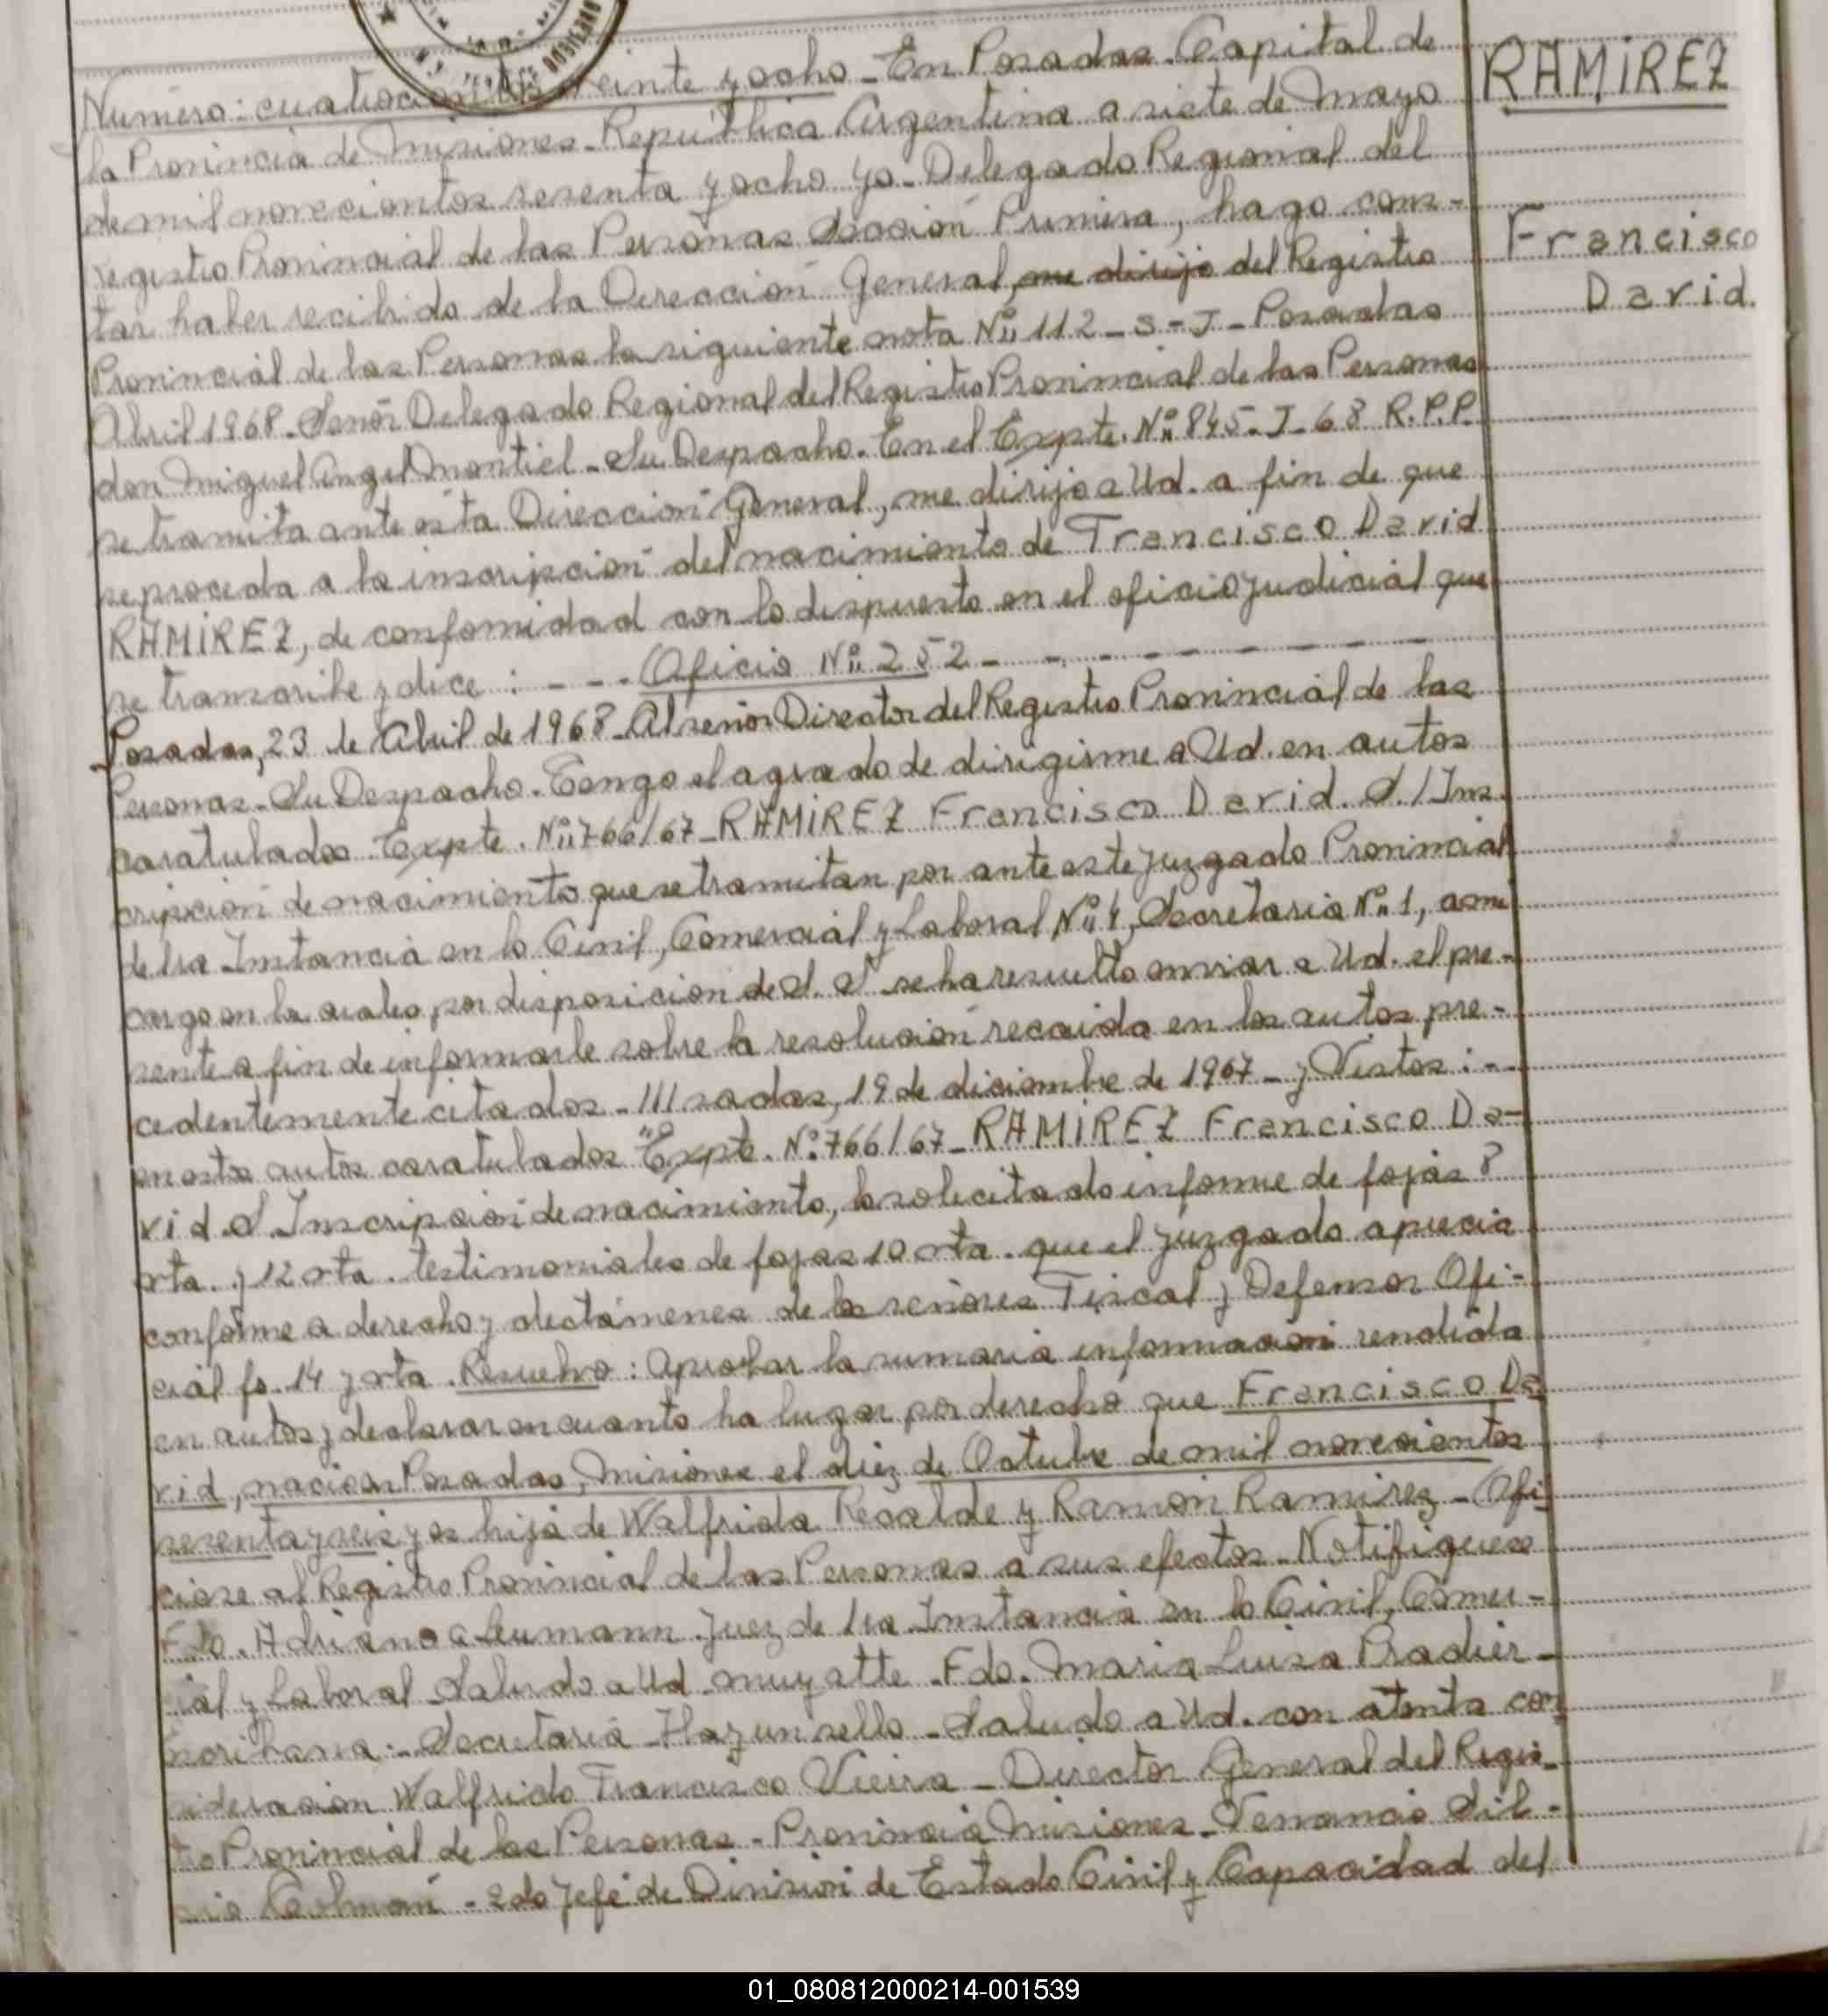 Número: cuatrocientos veinte y ocho - En Posadas. Capital de
la Provincia de Misiones - República Argentina a siete de Mayo
de mil novecientos sesenta y ocho yo - Delegado Regional del
registro Provincial de las Personas Sección Primera, hago cons-
tar haber recibido de la Dirección General, me dirijo del Registro
Provincial de las Personas la siguiente nota Nº 112 - S - J - Posadas
Abril 1968 - Senõr Delegado Regional del Registro Provincial de las Personas
don Miguel Angel Montiel - Su Despacho. En el Expte. Nº 845 - J - 68 R.P.P.
se tramita ante esta Dirección General, me dirijo a Ud. a fin de que
se proceda a la inscripción del nacimiento de Francisco David
RAMIREZ, de confomidad con lo dispuesto en el oficio judicial que
se transcribe y dice : - - - Oficio Nº 252 - - - - - - - - - -
Posadas, 23 de Abril de 1968 - Al señor Director del Registro Provincial de las
Personas - Su Despacho. Tengo el agrado de dirigirme a Ud. en autos
caratulados Expte. Nº 766/67 - RAMIREZ Francisco David. S./ Ins-
cripción de nacimiento que se tramitan por ante este juzgado Provincial
de 1ra Instancia en lo Civil, Comercial y Laboral Nº 4, Secretaria Nº 1, a mi
cargo en la cuales, por disposición de S. S se ha resuelto enviar a Ud. el pre-
sente a fin de informarle sobre la resolución recaida en los autos pre-
cedentemente citados - ///sadas, 19 de diciembre de 1967 - y Vistos : -
en estos autos caratulados "Expte. Nº 766/67 - RAMIREZ Francisco Da-
vid. S. Inscripción de nacimiento, lo solicitado informe de fojas 8
vta. y 12 vta. testimoniales de fojas 10 vta. que el juzgado aprecia
conforme a derecho y dictámenes de los señores Fiscal y Defensor Ofi-
cial fs. 14 y vta. Resuelvo : Aprobar la sumaria información rendida
en autos y declarar en cuanto ha lugar por derecho que Francisco Da
vid, nacio en Posadas, Misiones el diez de Octubre de mil novecientos
sesenta y seis y es hijo de Walfrida Recalde y Ramón Ramirez - Ofi
ciese al Registro Provincial de las Personas a sus efectos - Notifiquese
Fdo. Adriano Juez de 1ra Instancia en lo Civil, Comer-
cial y Laboral - Saludo a Ud. muy atte - Fdo. Maria Luisa Pradier -
Escribana :- Secretaria - Hay un sello - Saludo a Ud. con atenta con
sideración Walfrido Francisco Vieira - Director General del Regis-
tro Provincial de las Personas - Provincia Misiones - Venancio Sil-
vio - 2do Jefe de División de Estado Civil y Capacidad del
RAMIREZ
Francisco
David.
01_080812000214-001539